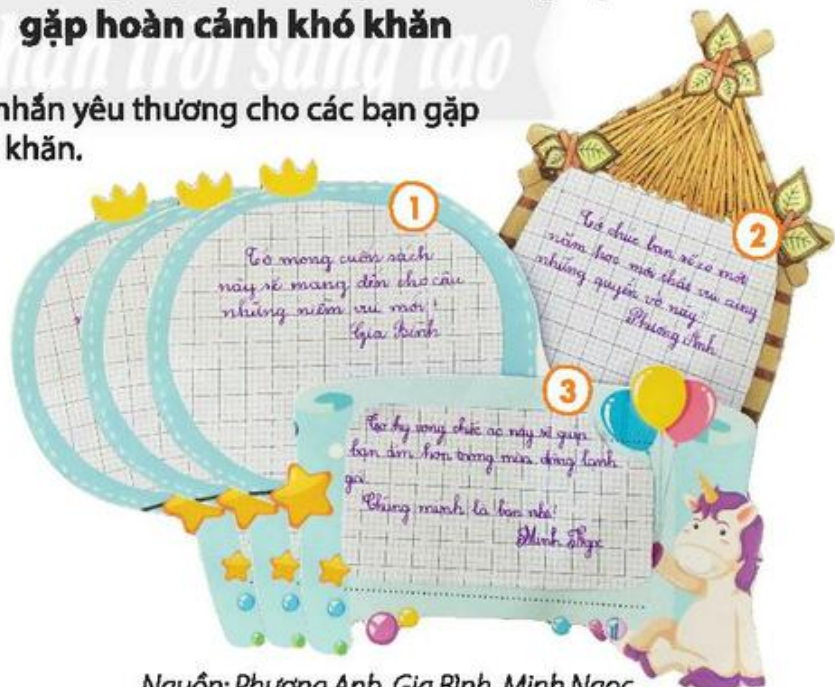 gặp hoàn cảnh khó khăn
nhắn yêu thương cho các bạn gặp
khăn.
1
Tớ mong cuốn sách
này sẽ mang đến cho cậu
những niềm vui mới!
Gia Bình
2
Tớ chúc bạn sẽ có một
năm học mới thật vui cùng
những quyển vở này!
Phương Anh
3
Tớ hy vọng chiếc áo này sẽ giúp
bạn ấm hơn trong mùa đông lạnh
giá.
Chúng mình là bạn nhé!
Minh Ngọc
Nguồn: Phương Anh, Gia Bình, Minh Ngọc